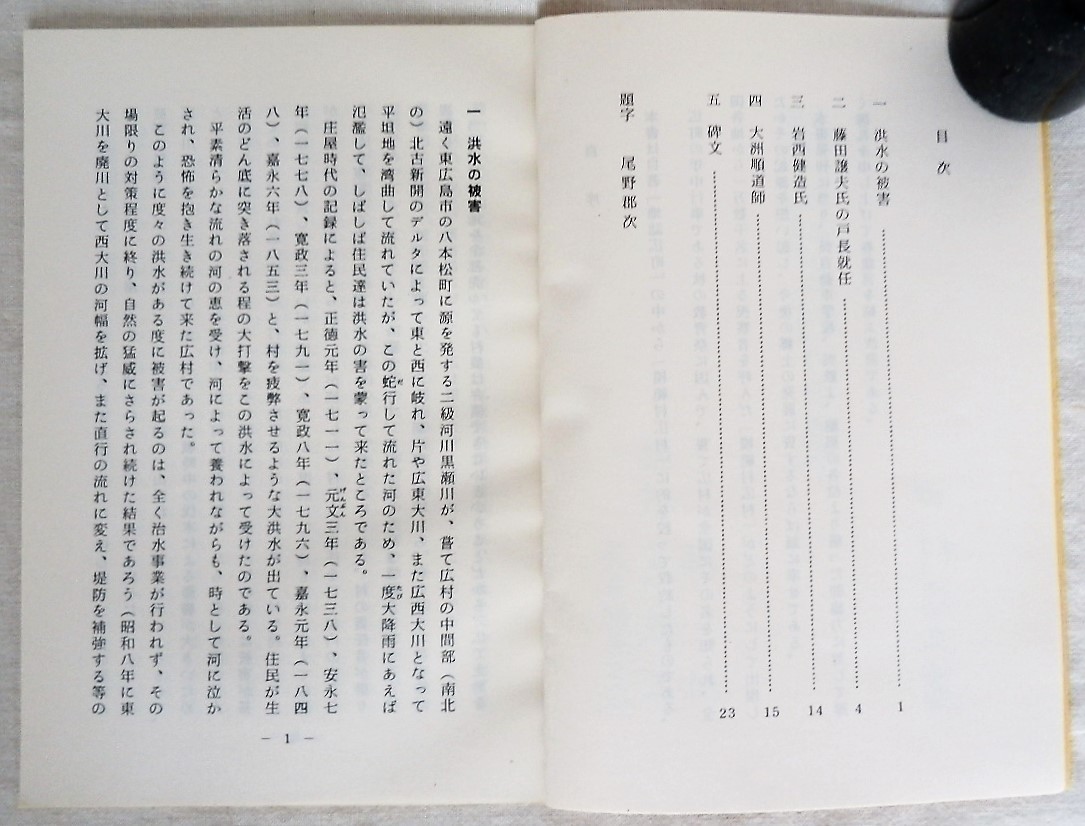 目次
一 洪水の被害 1
二 藤田譲夫氏の戸長就任 4
三 岩西健造氏 14
四 大洲順道師 15
五 碑文 23
題字 尾野郡次
一 洪水の被害
遠く東広島市の八本松町に源を発する二級河川黒瀬川が、嘗て広村の中間部(南北
の)北古新開のデルタによって東と西に岐れ、片や広東大川、また広西大川となって
平坦地を湾曲して流れていたが、この蛇行して流れた河のため、一度大降雨にあえば
氾濫して、しばしば住民達は洪水の害を蒙って来たところである。
庄屋時代の記録によると、正徳元年(一七一一)、元文三年(一七三八)、安永七
年(一七七八)、寛政三年(一七九一)、寛政八年(一七九六)、嘉永元年(一八四
八)、嘉永六年(一八五三)と、村を疲弊させるような大洪水が出ている。住民が生
活のどん底に突き落される程の大打撃をこの洪水によって受けたのである。
平素清らかな流れの河の恵を受け、河によって養われながらも、時として河に泣か
され、恐怖を抱き生き続けて来た広村であった。
このように度々の洪水がある度に被害が起るのは、全く治水事業が行われず、その
場限りの対策程度に終り、自然の猛威にさらされ続けた結果であろう(昭和八年に東
大川を廃川として西大川の河幅を拡げ、また直行の流れに変え、堤防を補強する等の
— 1 —